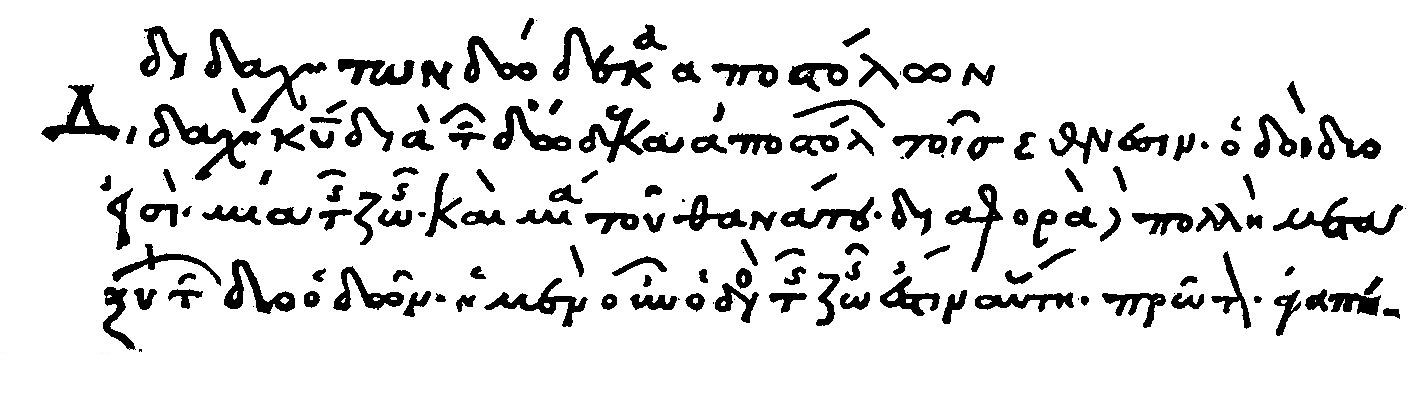 διδαχὴ τῶν δώδεκα ἀποστόλων
Διδαχὴ κῡ διὰ τῶν δώδεκα ἀποστόλων τοῖς ἔθνεσιν· ὁδοὶ δύο
εἰσί· μία τῆς ζωῆς· καὶ μία τοῦ θανάτου· διαφορὰ δὲ πολλὴ μετα
ξὺ τῶν δύο ὁδῶν· ἡ μὲν οὖν ὁδὸς τῆς ζωῆς ἐστιν αὕτη· πρῶτον· ἀγαπή-